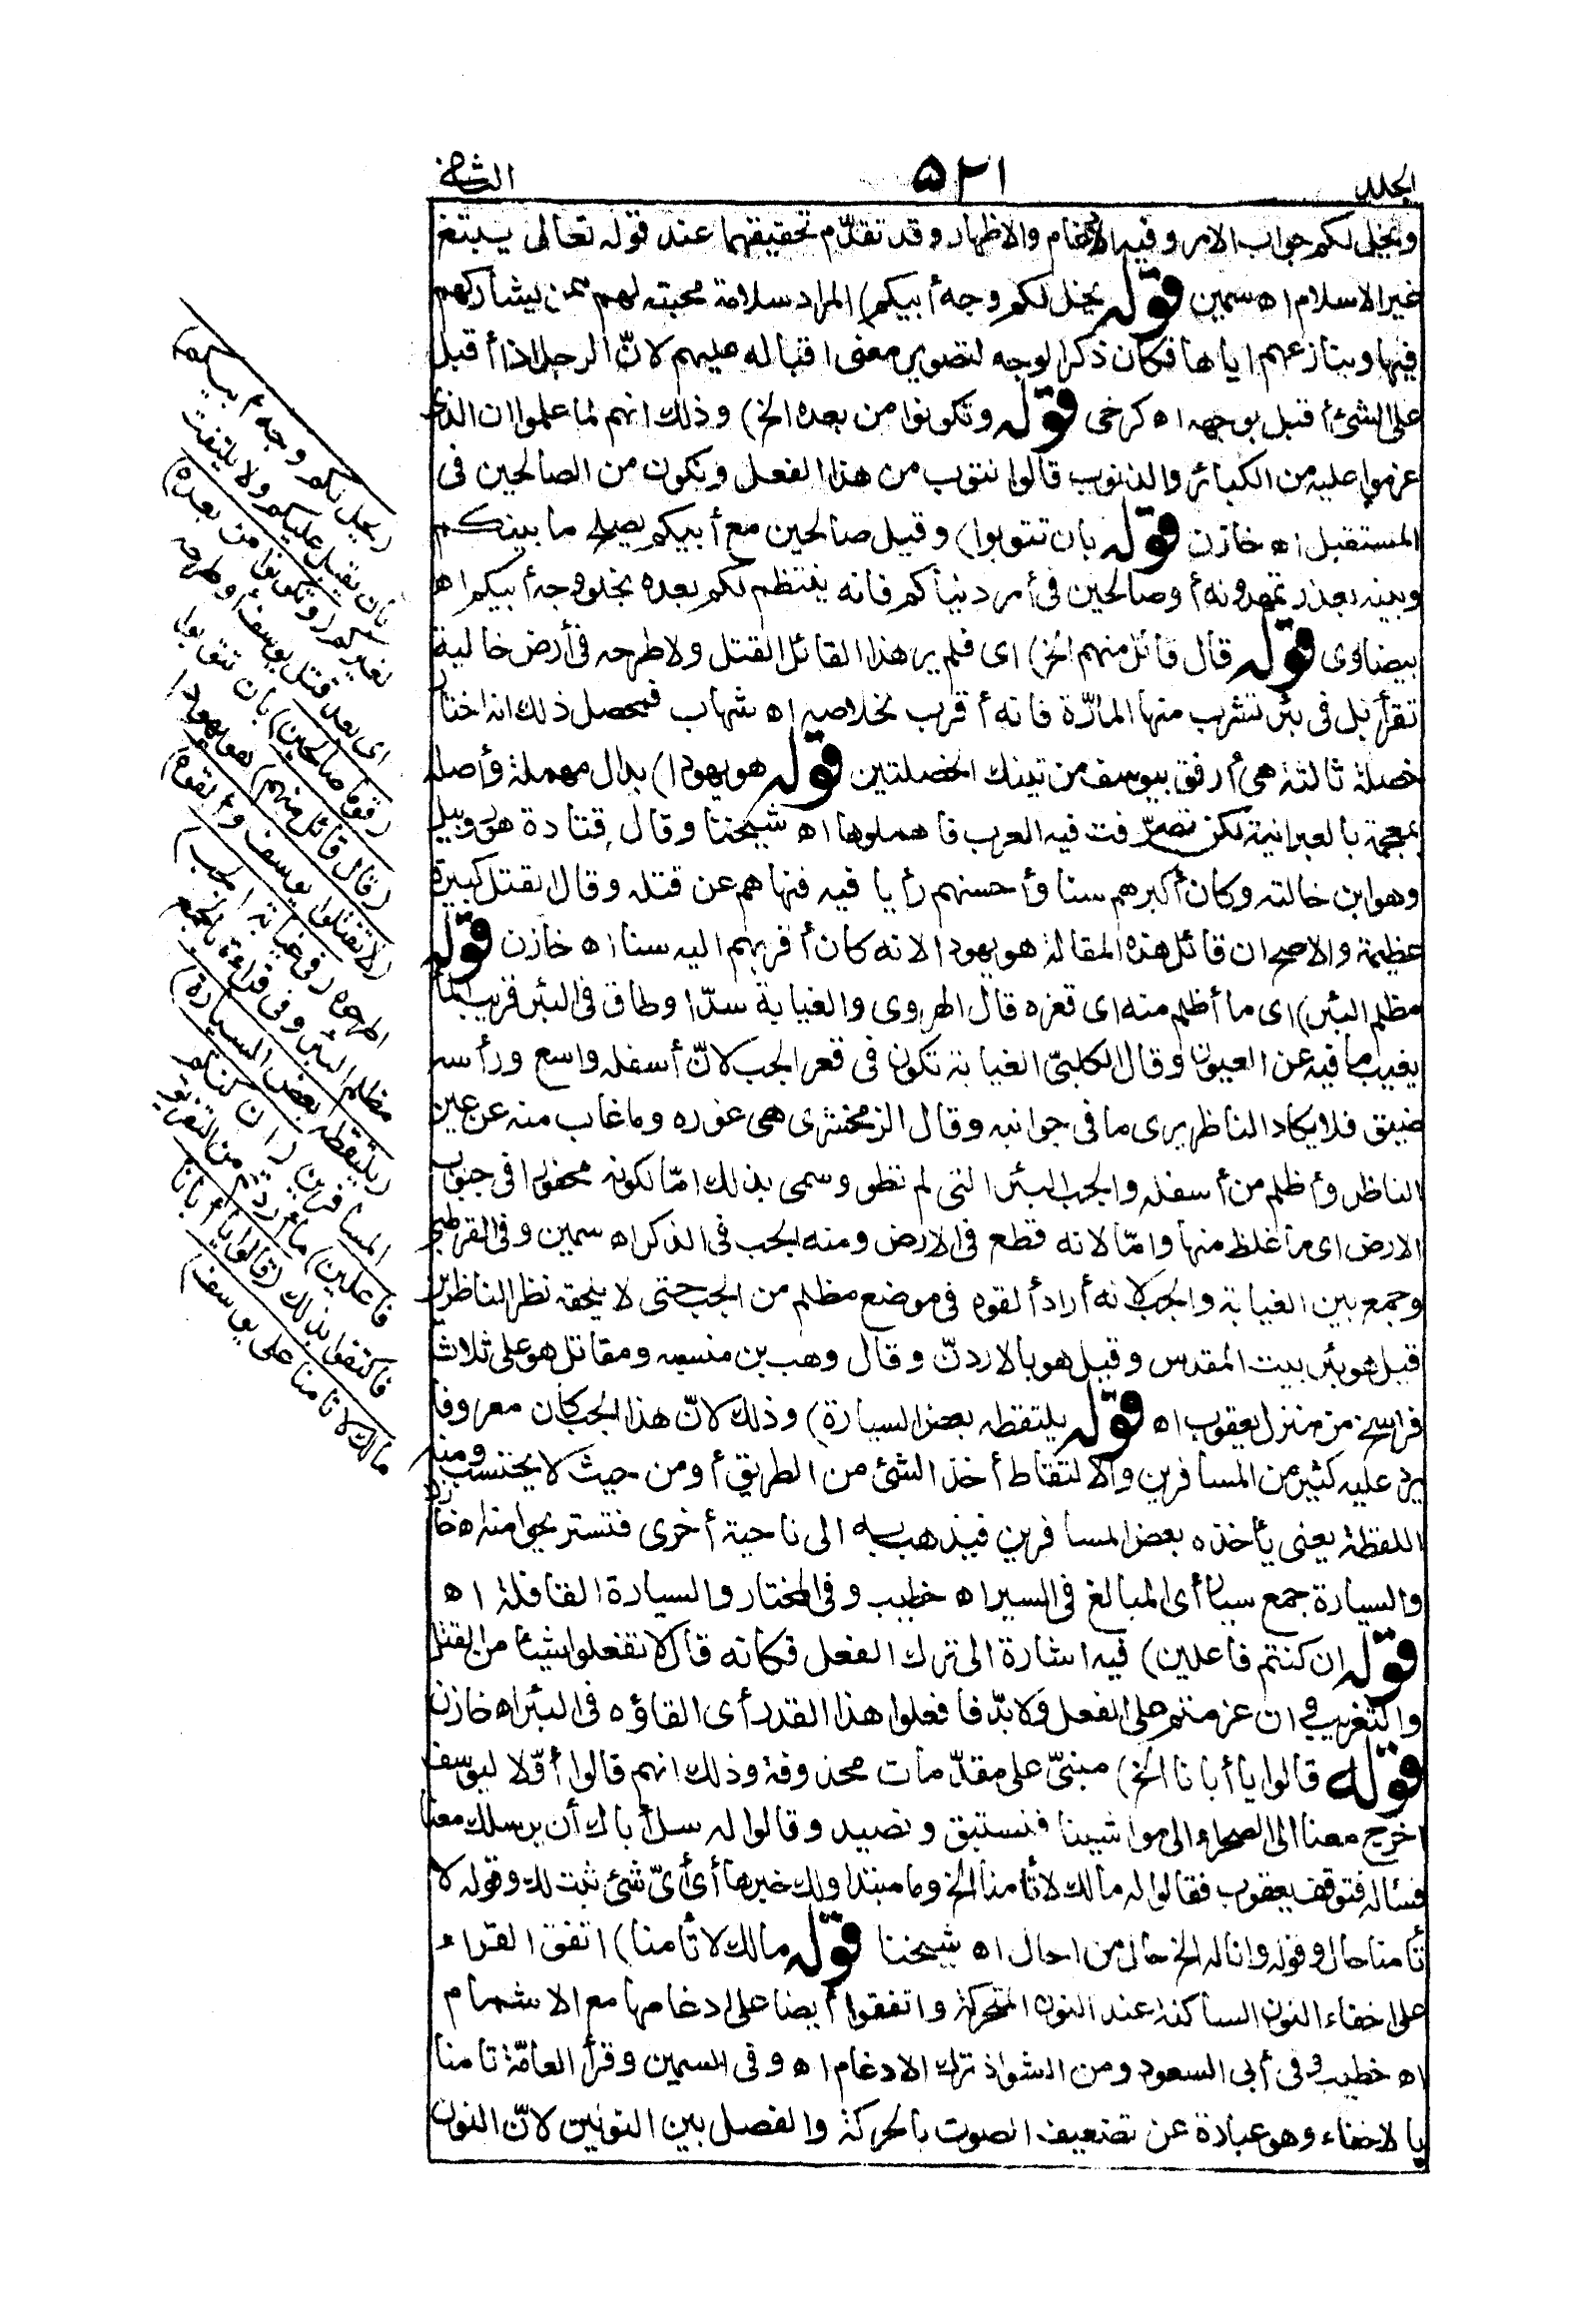 الجلد
٥٢١
الثاني
ويخل لكم جواب الامر وفيه الادغام والاظهار وقد تقدّم تحقيقهما عند قوله تعالى يبتغ
غير الاسلام اه سمين قوله يخل لكم وجه أبيكم) المراد سلامة محبته لهم ممن يشاركهم
فيها وينازعهم اياها فكان ذكر الوجه لتصوير معنى اقباله عليهم لانّ الرجل اذا أقبل
على الشئ أقبل بوجهه اه كرخى قوله وتكونوا من بعده الخ) وذلك انهم لما علموا ان الذى
عزموا عليه من الكبائر والذنوب قالوا نتوب من هذا الفعل ونكون من الصالحين فى
المستقبل اه خازن قوله بان تتوبوا) وقيل صالحين مع أبيكم يصلح ما بينكم
وبينه بعذر تمهدونه أو صالحين فى أمر دنياكم فانه ينتظم لكم بعده بخلو وجه أبيكم اه
بيضاوى قوله قال قائل منهم الخ) اى فلم ير هذا القائل القتل ولا طرحه فى أرض خالية
تقرأ بل فى بئر تشرب منها المارّة فانه أقرب لخلاصه اه شهاب فمحصل ذلك انه اختار
خصلة ثالثة هى أرفق بيوسف من تينك الخصلتين قوله هو يهودا) بدال مهملة وأصله
بمعجمة بالعبرانية لكن تصرّفت فيه العرب فاهملوها اه شيخنا وقال قتادة هو روبيل
وهو ابن خالته وكان أكبرهم سنا وأحسنهم رأيا فيه فنهاهم عن قتله وقال القتل كبيرة
عظيمة والاصح ان قائل هذه المقالة هو يهودا لانه كان أقربهم اليه سنا اه خازن قوله
مظلم البئر) اى ما أظلم منه اى قعره قال الهروى والغيابة سدّ او طاق فى البئر قريب الماء
يغيب ما فيه عن العيون وقال الكلبىّ الغيابة تكون فى قعر الجب لانّ أسفله واسع ورأسه
ضيق فلا يكاد الناظر يرى ما فى جوانبه وقال الزمخشرى هى غوره وما غاب منه عن عين
الناظر وأظلم من أسفله والجب البئر التى لم تطو وسمى بذلك امّا لكونه محفورا فى جبوب
الارض اى ما غلظ منها وامّا لانه قطع فى الارض ومنه الجب فى الذكر اه سمين وفى القرطبى
وجمع بين الغيابة والجب لانه أراد ألقوه فى موضع مظلم من الجب حتى لا يلحقه نظر الناظرين
قيل هو بئر بيت المقدس وقيل هو بالاردنّ وقال وهب بن منبه ومقاتل هو على ثلاثة
فراسخ من منزل يعقوب اه قوله يلتقطه بعض السيارة) وذلك لانّ هذا الجب كان معروفا
يرد عليه كثير من المسافرين والالتقاط أخذ الشئ من الطريق أو من حيث لا يحتسب ومنه
اللقطة يعنى يأخذه بعض المسافرين فيذهب به الى ناحية أخرى فتستريحوا منه اه خازن
والسيارة جمع سيار أى المبالغ فى السير اه خطيب وفى المختار والسيارة القافلة اه
قوله ان كنتم فاعلين) فيه اشارة الى ترك الفعل فكانه قال لا تفعلوا شيئا من القتل
والتغريب وان عزمتم على الفعل ولا بدّ فافعلوا هذا القدر أى القاؤه فى البئر اه خازن
قوله قالوا يا أبانا الخ) مبنىّ على مقدّمات محذوفة وذلك انهم قالوا أوّلا ليوسف
اخرج معنا الى الصحراء والى مواشينا فنستبق ونصيد وقالوا له سل أباك أن يرسلك معنا
فسأله فتوقف يعقوب فقالوا له مالك لا تأمنا الخ وما مبتدا ولك خبرها أى أىّ شئ ثبت لك وقوله لا
تأمنا حال وقوله وانا له الخ حال من احال اه شيخنا قوله مالك لا تأمنا) اتفق القراء
على اخفاء النون الساكنة عند النون المتحركة واتفقوا أيضا على ادغامها مع الاشمام
اه خطيب وفى أبى السعود ومن الشواذ ترك الادغام اه وفى السمين وقرأ العامّة تامنا
بالاخفاء وهو عبارة عن تضعيف الصوت بالحركة والفصل بين النونين لانّ النون
(يخل لكم وجه أبيكم)
بأن يقبل عليكم ولا يلتفت
لغيركم (وتكونوا من بعده)
اى بعد قتل يوسف أو طرحه
(قوما صالحين) بان تتوبوا
(قال قائل منهم) هو يهودا
(لا تقتلوا يوسف وألقوه)
اطرحوه (فى غيابة الجب)
مظلم البئر وفى قراءة بالجمع
(يلتقطه بعض السيارة)
المسافرين (ان كنتم
فاعلين) ما أردتم من التفريق
فاكتفوا بذلك (قالوا يا أبانا
مالك لا تامنا على يوسف)